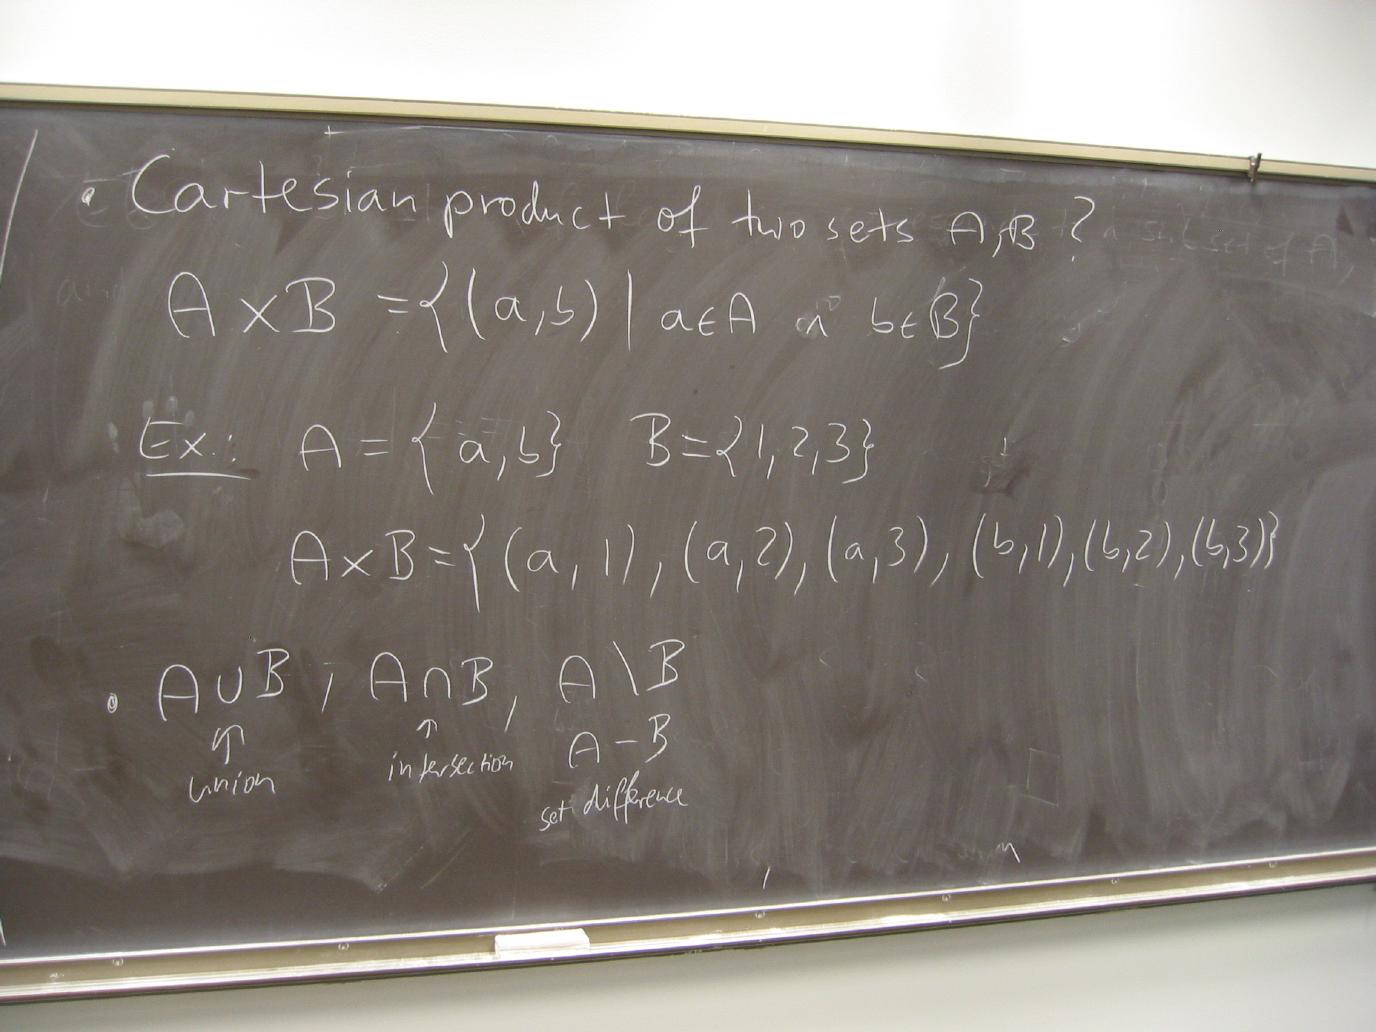 • Cartesian product of two sets A, B ?
A × B = {(a, b) | a ∈ A ∧ b ∈ B}
Ex.: A = {a, b} B = {1, 2, 3}
A × B = {(a, 1), (a, 2), (a, 3), (b, 1), (b, 2), (b, 3)}
• A ∪ B , A ∩ B , A \ B
A − B
↑ union ↑ intersection
set difference